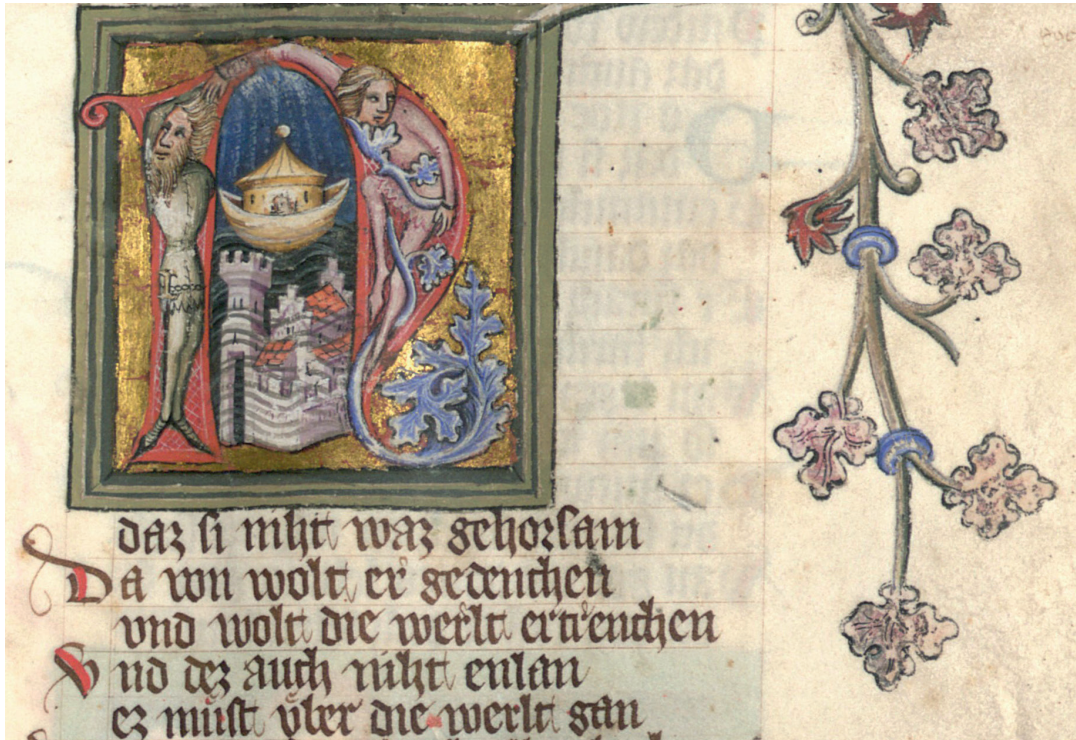 daz si niht waz gehorsam
Da von wolt er gedenchen
vnd wolt die werlt ertrenchen
Vnd dez auch niht enlan
ez můst vͤber die werlt gan